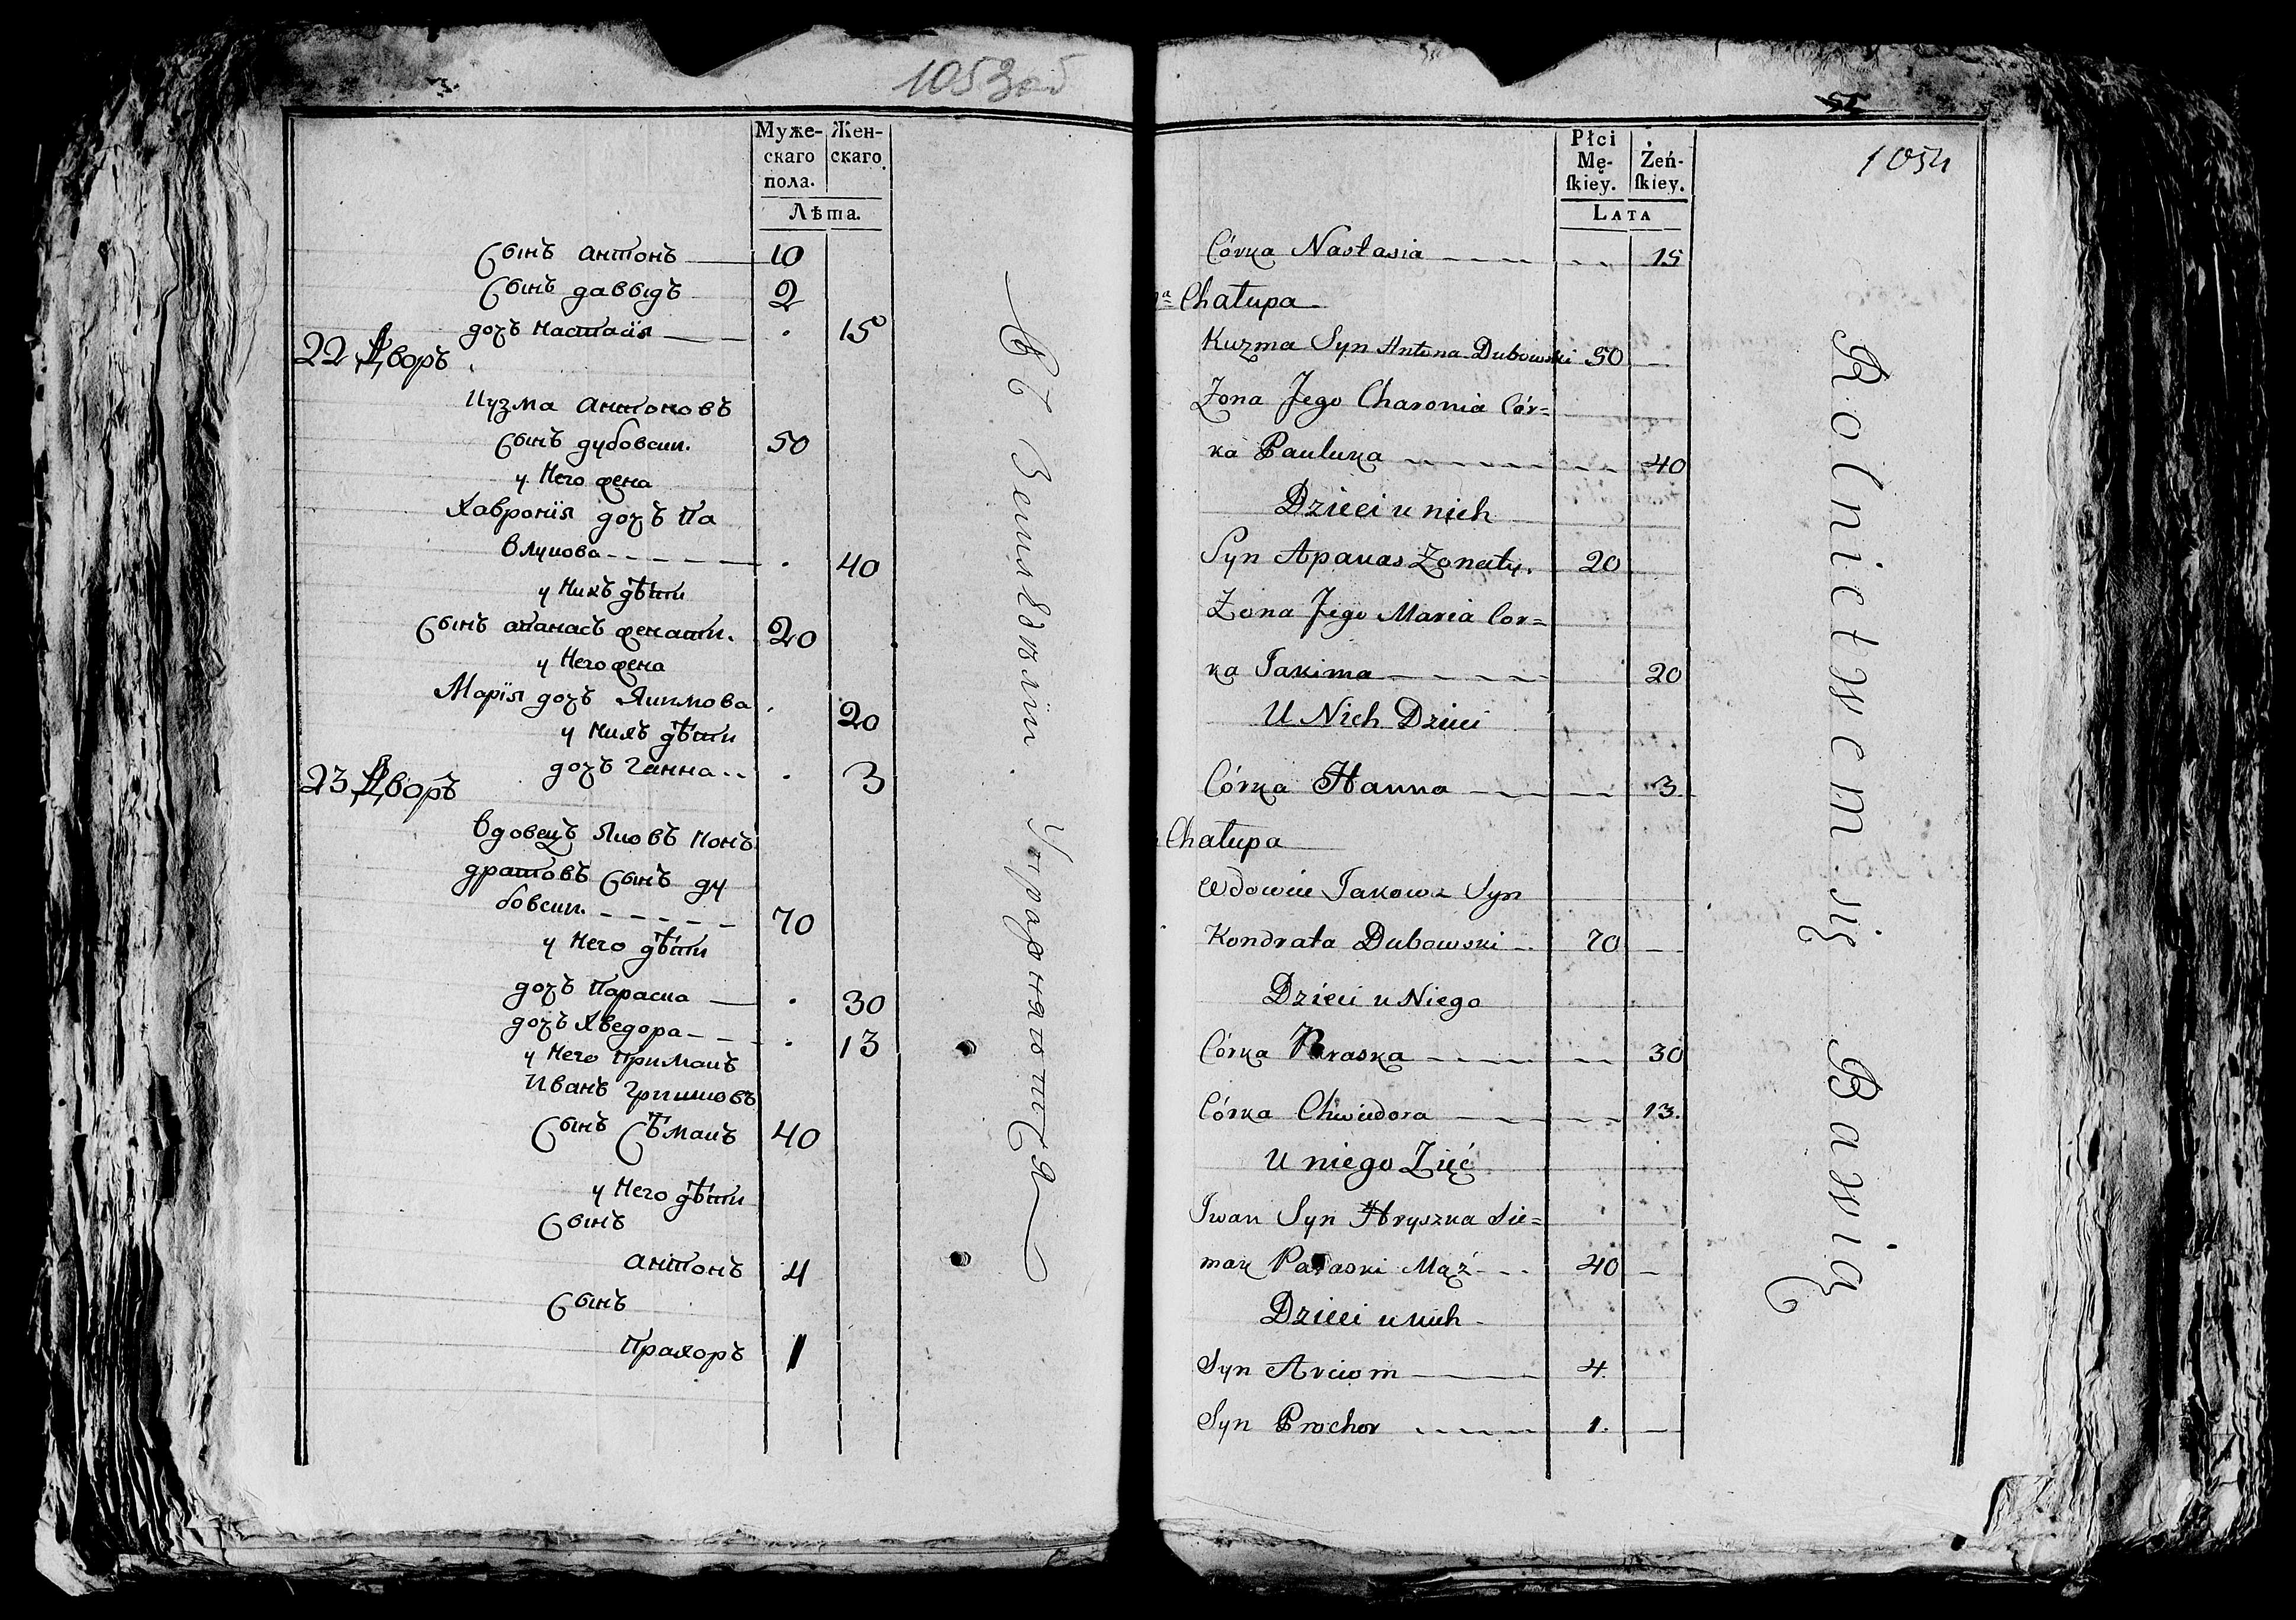 1053об
Муже-
скаго
пола.
Жен-
скаго.
Лѣта.
Сынъ антонъ 10
Сынъ давыдъ 2
дочъ настасїя . 15
22 Дворъ
Кузма антоновъ
сынъ дубовски. 50
у него жена
Хавронїя дочъ па
влукова . 40
у нихъ дѣти
Сынъ апанасъ женати. 20
у него жена
Марїя дочъ Якимова . 20
у нихъ дѣти
дочъ ганна . 3
23 Дворъ
вдовецъ Яковъ кон
дратовъ сынъ ду
бовски. 70
у него дѣти
дочъ параска . 30
дочъ хведора . 13
у него примакъ
Иванъ гришковъ
сынъ Сѣмакъ 40
у него дѣти
Сынъ
антонъ 4
Сынъ
прахоръ 1
Въ Земледѣлїи. Упражняютця
55
1054
Płci
Mę-
ſkiey.
Żeń-
ſkiey.
LATA
Córka Nastasia 15
Chałupa
Kuzma Syn Antona Dubowski 50
Żona Jego Chawronia Cór=
ka Pauluka 40
Dzieci u nich
Syn Apanas Żonaty. 20
Żona Jego Maria Cor=
ka Jakima 20
U Nich Dzieci
Córka Hanna 3
Chałupa
Wdowiec Jakow Syn
Kondrata Dubowski 70
Dzieci u Niego
Córka Paraska 30
Córka Chwiedora 13.
U niego Zięć
Iwan Syn Hryszka Sie=
mak Paraski Mąż 40
Dzieci u nich
Syn Arciom 4.
Syn Prochor 1.
Rolnictwem się Bawią